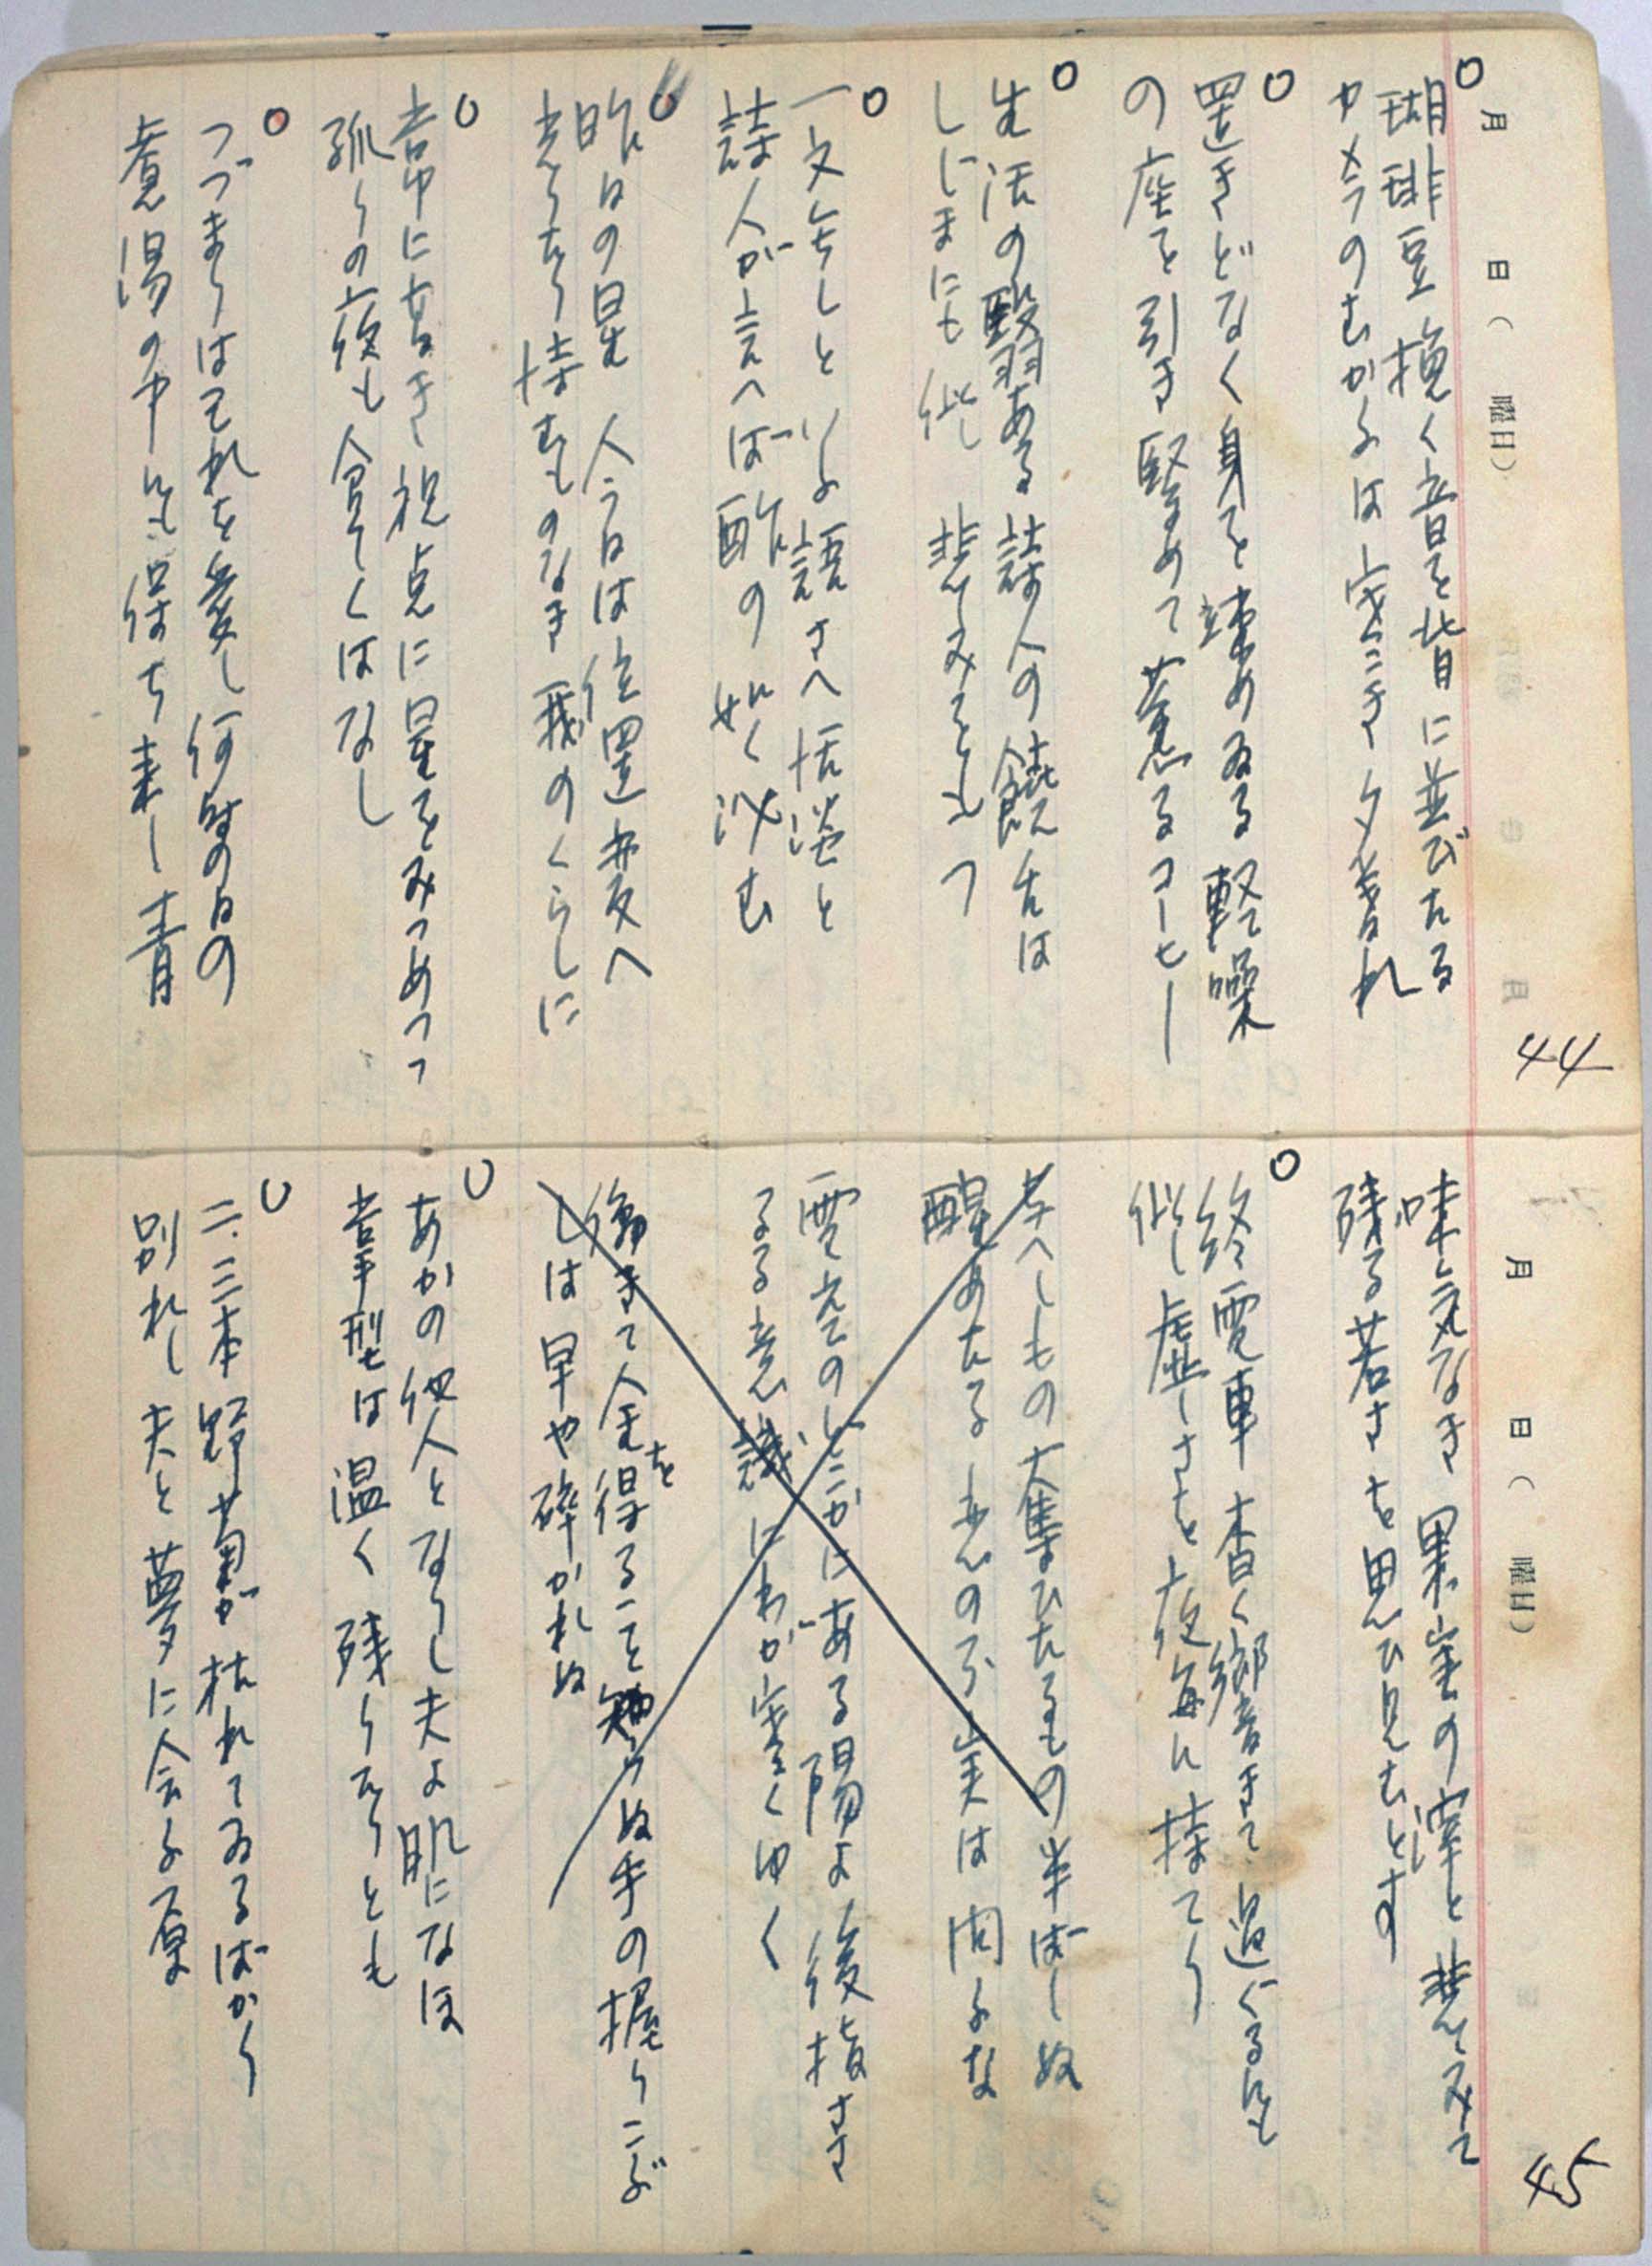 月　日（　曜日）
44
珈琲豆挽く音を背に並びたる
カメラのむかふは寒き夕暮れ
置きどなく身を竦めゐる軽噪
の座を引き堅めて薫るコーヒー
生活の翳ある詩人の饒舌は
しじまにも似し悲しみをもつ
一文無しといふ語さへ恬淡と
詩人が言へば酢の如く沁む
昨日の星　今日は位置変へ
光りたり恃むものなき我のくらしに
昔中に若き視点に星をみつめつつ
孤りの夜も貧しくはなし
つづまりはこれを愛し何時の日の
煮湯の中にも保ち来し青
月　日（　曜日）
45
味気なき果実の滓と悲しみて
残る若さを思ひ見むとす
終電車杳く響きて過ぐるにも
似し虚しさを夜毎に持てり
失へしもの大集ひたるもの半ばしぬ
醒めたる恋のみ実は問ふな
雲空のしこかにある陽よ後指ささ
るる意識にわが寒くゆく
働きて金を得ること知らぬ手の握りこぶ
しは早や砕かれぬ
あかの他人となりし夫よ肌になほ
掌型は温く残りをりとも
二、三本野菊が枯れてゐるばかり
別れし夫と夢に会ふ原